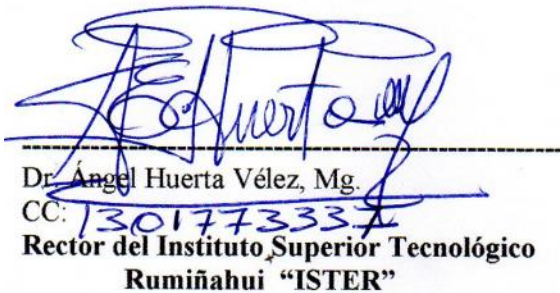 Huerta
Dr. Ángel Huerta Vélez, Mg.
CC: 1301773337
Rector del Instituto Superior Tecnológico
Rumiñahui “ISTER”